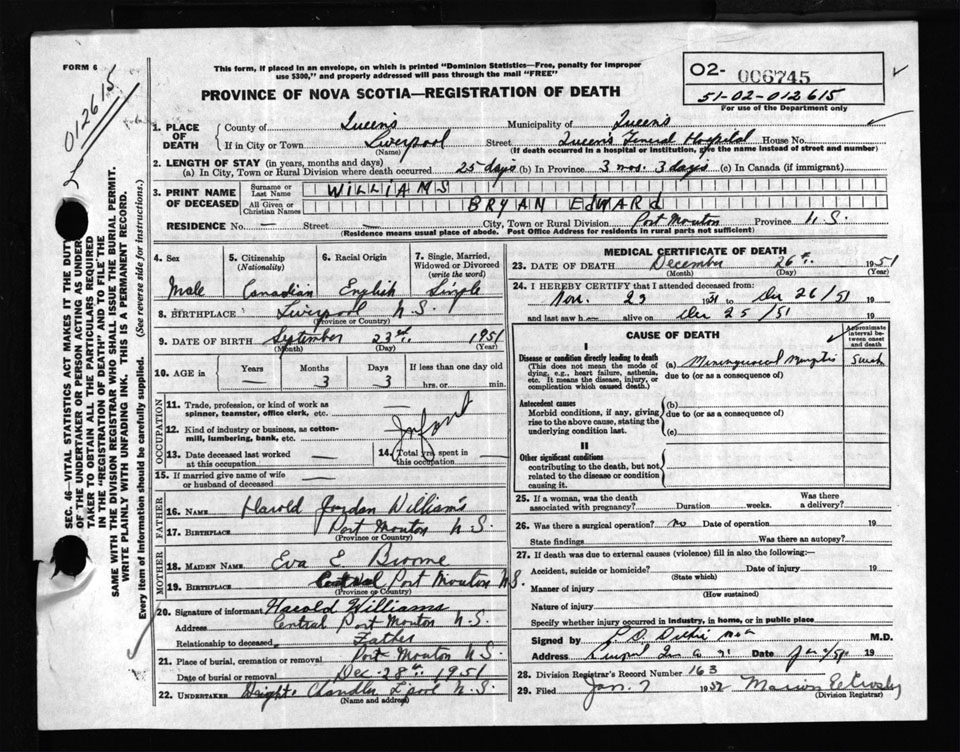 FORM 6
012615
L
This form, if placed in an envelope, on which is printed "Dominion Statistics—Free, penalty for improper
use $300," and properly addressed will pass through the mail "FREE"
PROVINCE OF NOVA SCOTIA—REGISTRATION OF DEATH
02- 006745
51-02-012615
For use of the Department only
SEC. 46—VITAL STATISTICS ACT MAKES IT THE DUTY
OF THE UNDERTAKER OR PERSON ACTING AS UNDER-
TAKER TO OBTAIN ALL THE PARTICULARS REQUIRED
IN THE "REGISTRATION OF DEATH" AND TO FILE THE
SAME WITH THE DIVISION REGISTRAR WHO SHALL ISSUE THE BURIAL PERMIT.
WRITE PLAINLY WITH UNFADING INK. THIS IS A PERMANENT RECORD.
Every item of information should be carefully supplied. (See reverse side for instructions.)
1. PLACE OF DEATH
County of Queens Municipality of Queens
If in City or Town Liverpool Street Queens General Hospital House No.
(Name) (If death occurred in a hospital or institution, give the name instead of street and number)
2. LENGTH OF STAY (in years, months and days)
(a) In City, Town or Rural Division where death occurred 25 days (b) In Province 3 mos. 3 days (c) In Canada (if immigrant)
3. PRINT NAME OF DECEASED
Surname or Last Name WILLIAMS
All Given or Christian Names BRYAN EDWARD
RESIDENCE No. — Street — City, Town or Rural Division Port Mouton Province N.S.
(Residence means usual place of abode. Post Office Address for residents in rural parts not sufficient)
4. Sex 5. Citizenship (Nationality) 6. Racial Origin 7. Single, Married, Widowed or Divorced (write the word)
Male Canadian English Single
8. BIRTHPLACE Liverpool N.S.
(Province or Country)
9. DATE OF BIRTH September 23rd 1951
(Month) (Day) (Year)
10. AGE in Years Months Days If less than one day old
— 3 3 hrs. or min.
OCCUPATION
11. Trade, profession, or kind of work as
spinner, teamster, office clerk, etc. —
12. Kind of industry or business, as cotton-
mill, lumbering, bank, etc. —
Infant
13. Date deceased last worked
at this occupation —
14. Total yrs. spent in
this occupation —
15. If married give name of wife
or husband of deceased —
FATHER
16. NAME Harold Jordan Williams
17. BIRTHPLACE Port Mouton N.S.
(Province or Country)
MOTHER
18. MAIDEN NAME Eva E.
19. BIRTHPLACE Central Port Mouton N.S.
(Province or Country)
20. Signature of informant Harold Williams
Address Central Port Mouton N.S.
Relationship to deceased Father
21. Place of burial, cremation or removal Port Mouton N.S.
Date of burial or removal Dec. 28th 1951
22. UNDERTAKER Wright Chandler L'pool N.S.
(Name and address)
MEDICAL CERTIFICATE OF DEATH
23. DATE OF DEATH December 26th 1951
(Month) (Day) (Year)
24. I HEREBY CERTIFY that I attended deceased from:
Nov. 23 1951 to Dec 26/51 19
and last saw h— alive on Dec 25/51 19
CAUSE OF DEATH
Approximate interval between onset and death
I
Disease or condition directly leading to death
(This does not mean the mode of
dying, e.g., heart failure, asthenia,
etc. It means the disease, injury, or
complication which caused death.)
(a)
due to (or as a consequence of)
Antecedent causes
Morbid conditions, if any, giving
rise to the above cause, stating the
underlying condition last.
(b)
due to (or as a consequence of)
(c)
II
Other significant conditions
contributing to the death, but not
related to the disease or condition
causing it.
25. If a woman, was the death
associated with pregnancy? Duration weeks. Was there
a delivery?
26. Was there a surgical operation? no Date of operation 19
State findings Was there an autopsy?
27. If death was due to external causes (violence) fill in also the following:—
Accident, suicide or homicide? Date of injury 19
(State which)
Manner of injury
(How sustained)
Nature of injury
Specify whether injury occurred in industry, in home, or in public place
Signed by M.D.
Address Date 19
28. Division Registrar's Record Number 163
29. Filed Jan. 7 1952 Marion E. Crosby
(Division Registrar)